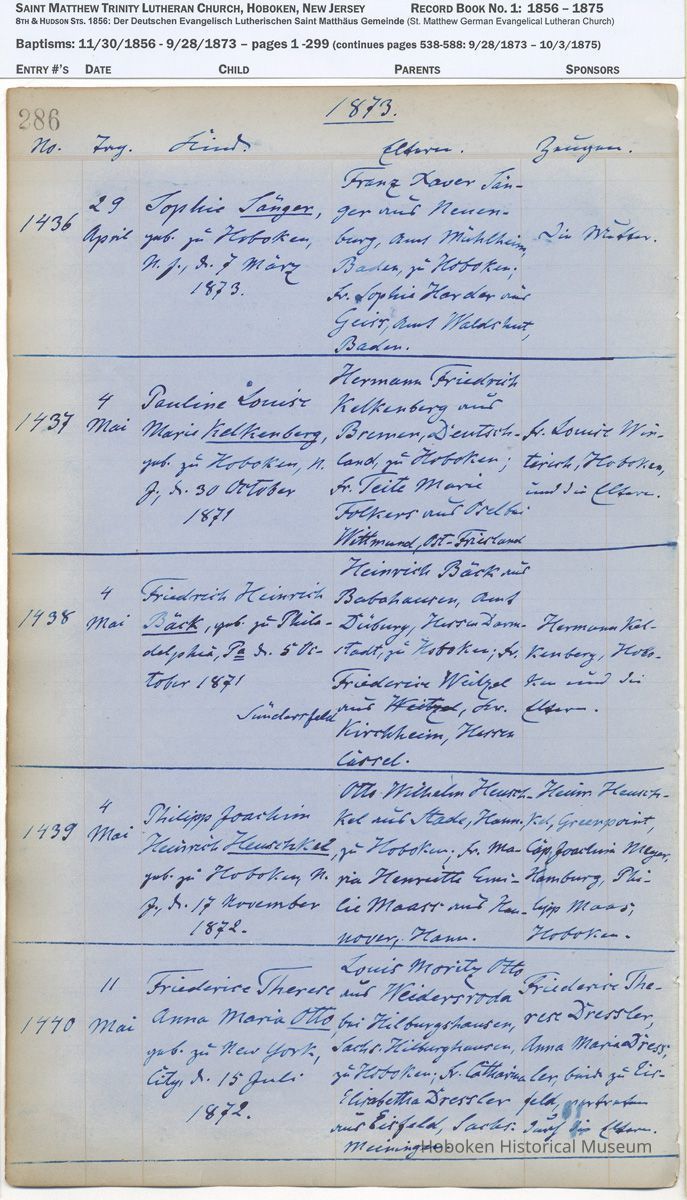 SAINT MATTHEW TRINITY LUTHERAN CHURCH, HOBOKEN, NEW JERSEY RECORD BOOK NO. 1: 1856 – 1875
8TH & HUDSON STS. 1856: Der Deutschen Evangelisch Lutherischen Saint Matthäus Gemeinde (St. Matthew German Evangelical Lutheran Church)
Baptisms: 11/30/1856 - 9/28/1873 – pages 1 -299 (continues pages 538-588: 9/28/1873 – 10/3/1875)
ENTRY #'S DATE CHILD PARENTS SPONSORS
286
1873.
No. Tag. Kind. Eltern. Zeugen.
1436
29
April
Sophie Sänger,
geb. zu Hoboken,
N. J., d. 7 März
1873.
Franz Xaver Sän-
ger aus Neuen-
burg, Amt Mühlheim,
Baden, zu Hoboken;
Fr. Sophie Harder aus
Geiss, Amt Waldshut,
Baden.
Die Mutter.
1437
4
Mai
Pauline Louise
Marie Kelkenberg,
geb. zu Hoboken, N.
J., d. 30 October
1871
Hermann Friedrich
Kelkenberg aus
Bremen, Deutsch-
land, zu Hoboken;
Fr. Teite Marie
Folkers aus Oselbei
Wittmund, Ost-Friesland
Fr. Louise Win-
terich, Hoboken,
und die Eltern.
1438
4
Mai
Friedrich Heinrich
Bäck, geb. zu Phila-
delphia, Pa d. 5 Oc-
tober 1871
Heinrich Bäck aus
Babahausen, Amt
Dieburg, Hessen Darm-
stadt, zu Hoboken; Fr.
Friederice Weitzel
aus
Kirchheim, Hessen
Cassel.
Hermann Kel-
kenberg, Hobo-
ken und die
Eltern.
1439
4
Mai
Philipp Joachim
Heinrich Heuschkel,
geb. zu Hoboken, N.
J., d. 17 November
1872.
Otto Wilhelm Heusch-
kel aus Stade, Hann.
zu Hoboken; Fr. Ma-
ria Henriette Emi-
lie Maass aus Han-
nover, Hann.
Heinr. Heusch-
kel, Greenpoint,
Cap. Joachim Meyer,
Hamburg, Phi-
lipp Maas,
Hoboken.
1440
11
Mai
Friederice Therese
Anna Maria Otto,
geb. zu New York,
City, d. 15 Juli
1872.
Louis Moritz Otto
aus Weidersroda
bei Hilburgshausen,
Sachs. Hilburghausen,
zu Hoboken; Fr. Catharina
Elisabetha Dressler
aus Eisfeld, Sachs.
Meiningen.
Friederice The-
rese Dressler,
Anna Maria Dress-
ler, beide zu Eis-
feld, vertreten
durch die Eltern.
Hoboken Historical Museum